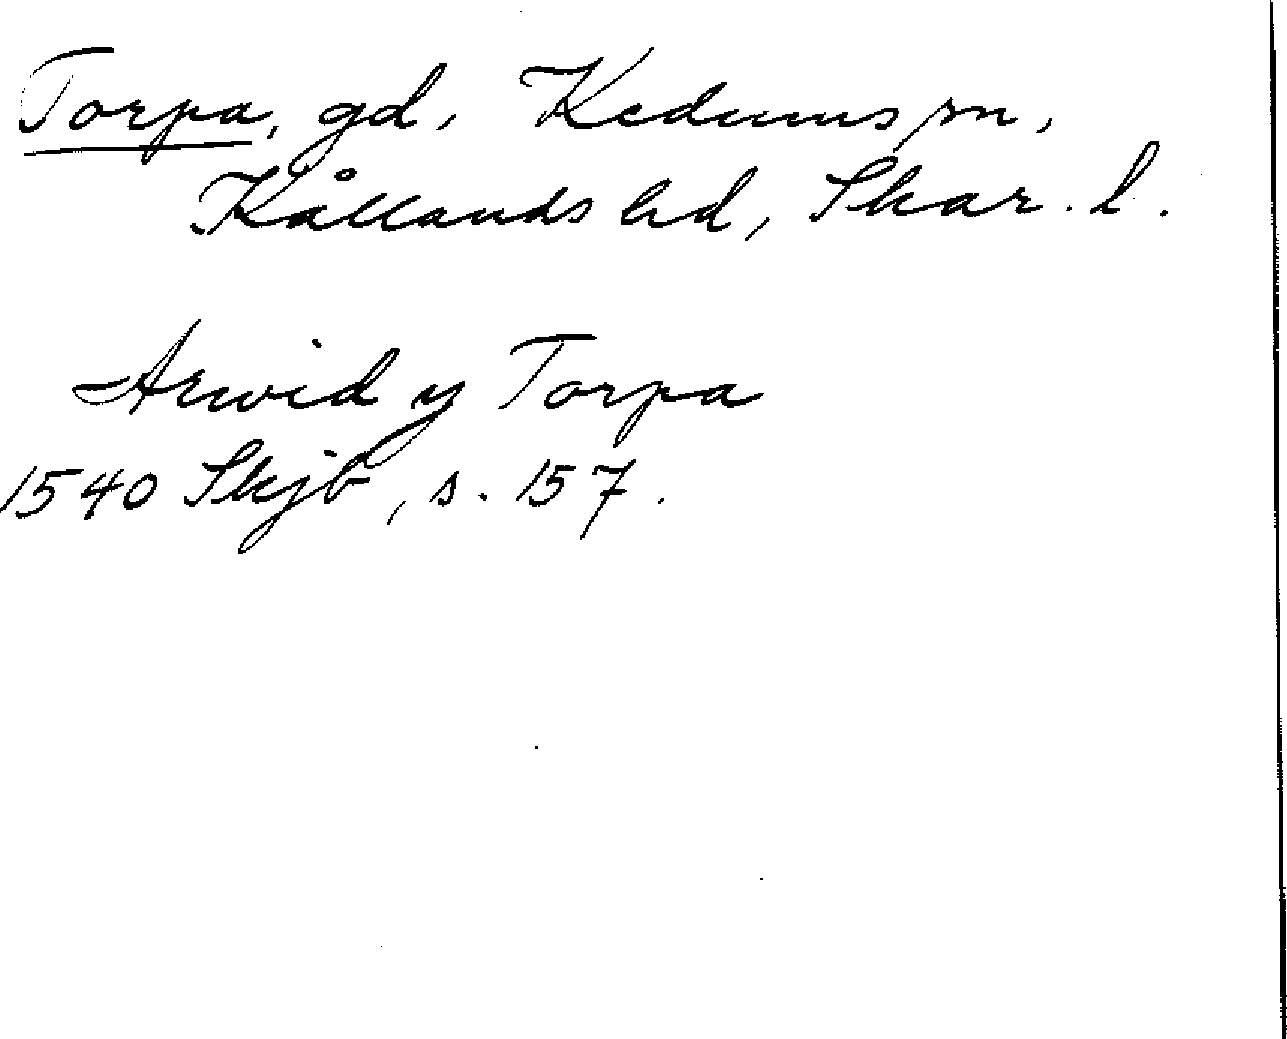 Torpa, gd, Kedums sn,
Kållands hd, Skar. l.
Arwid y Torpa
1540 Skjb, s. 157.